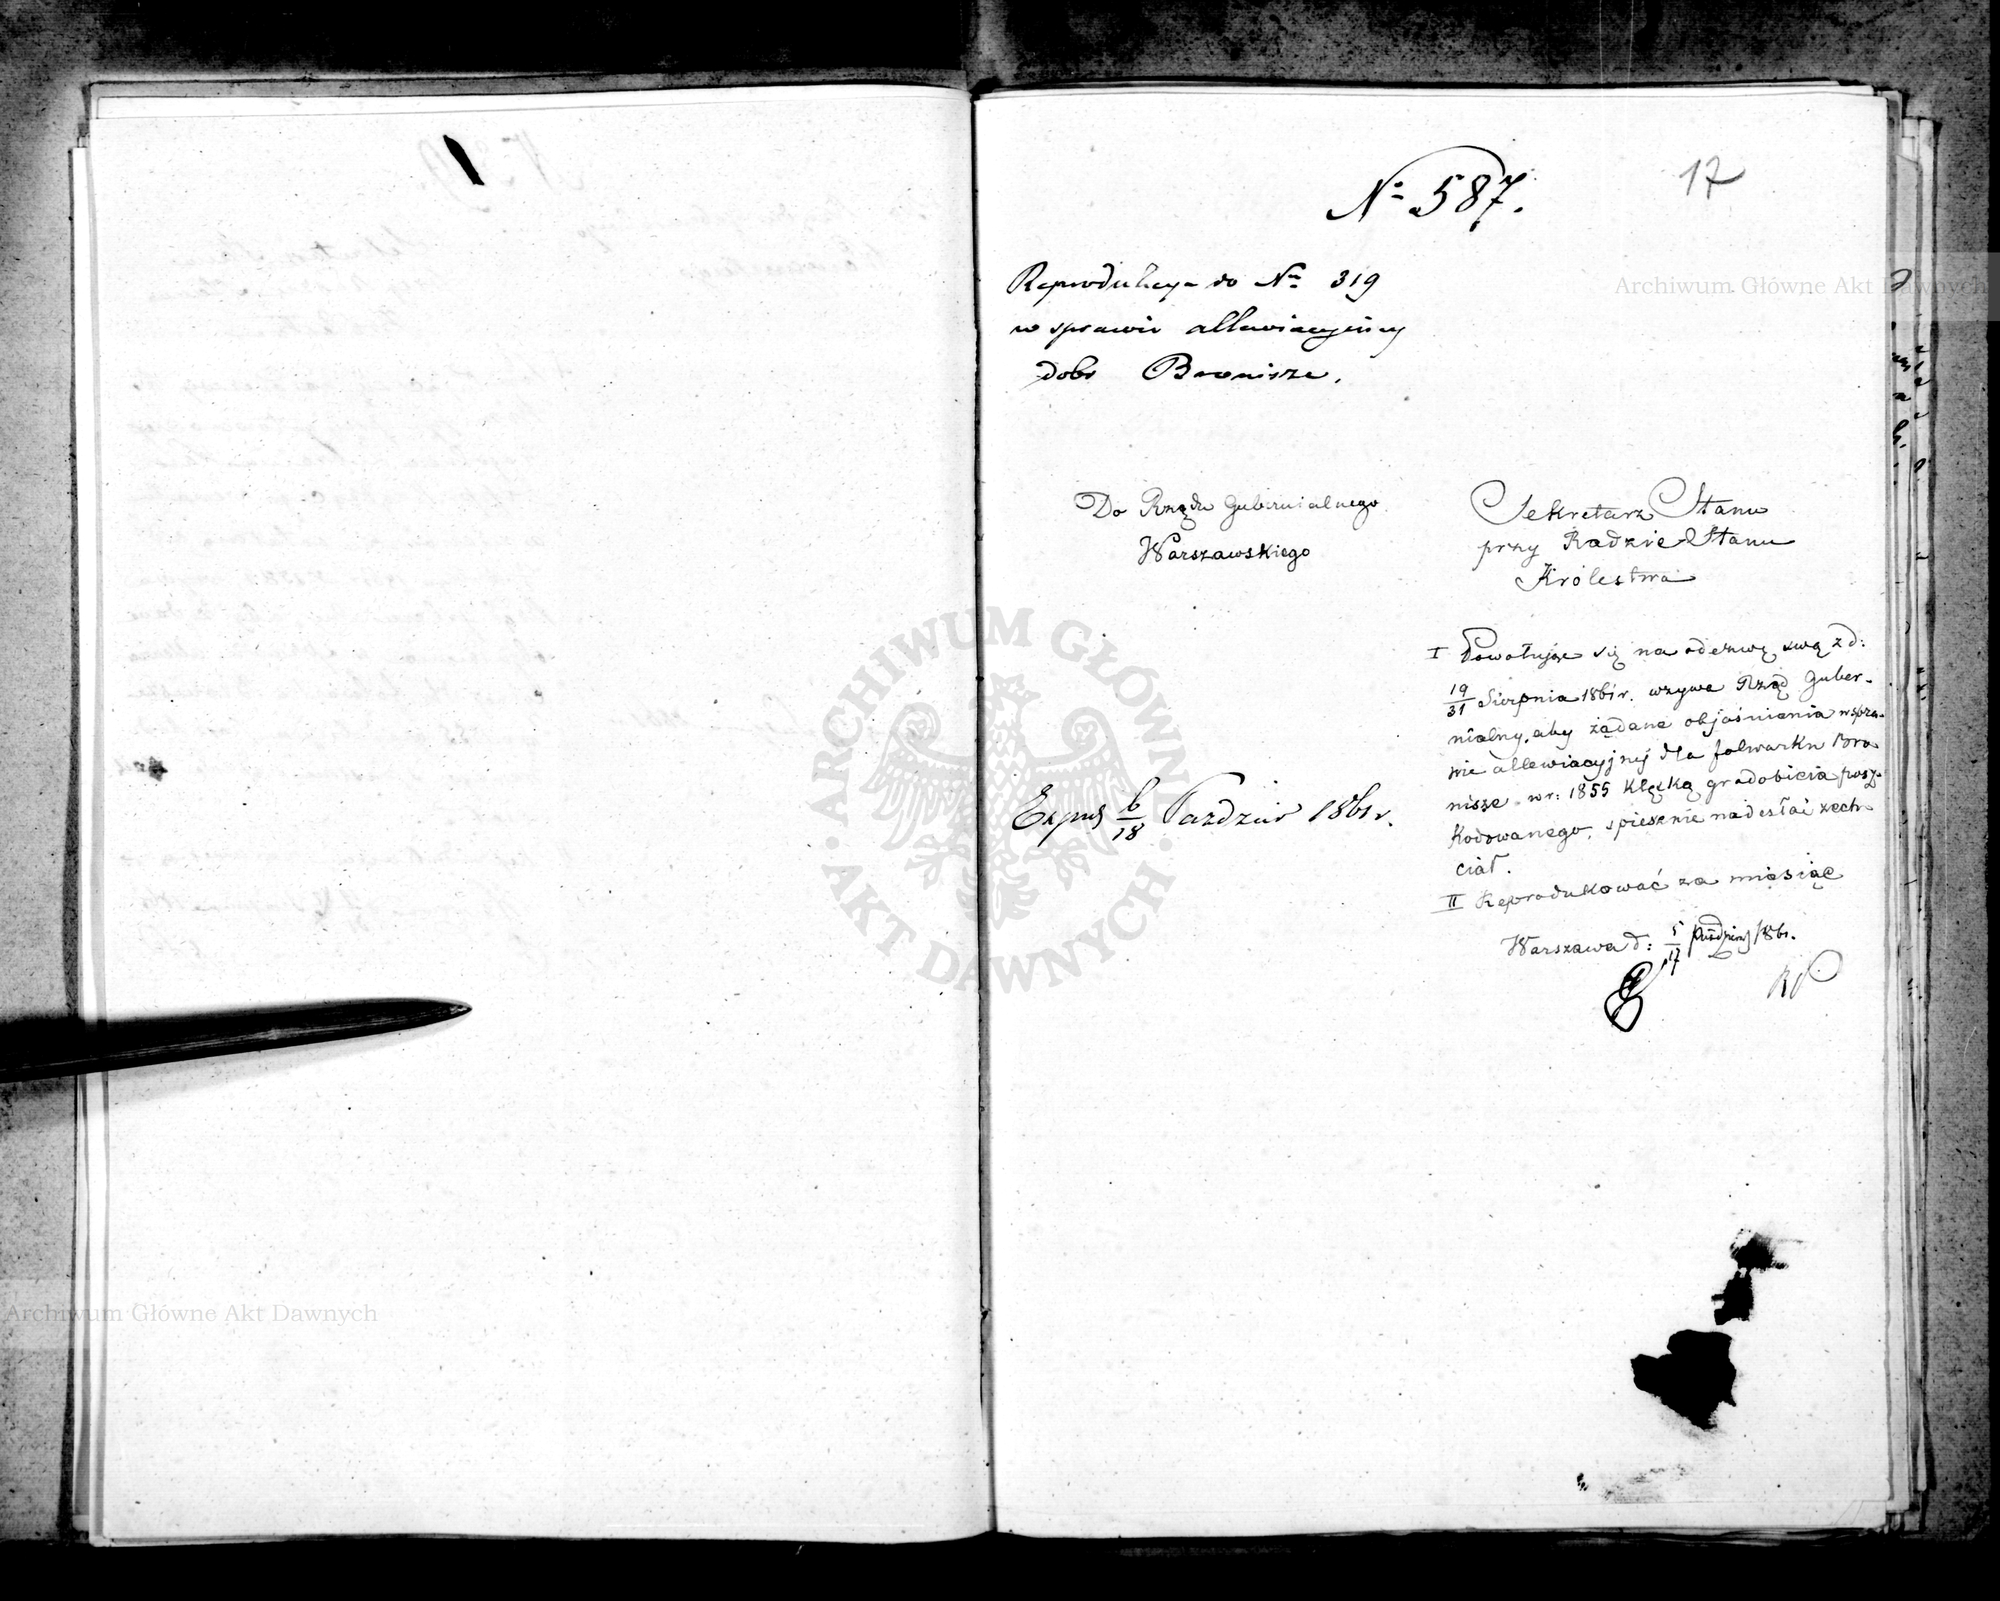 17
№ 587.
Reprodukcya do Nru 319
w sprawie allewiacyjnej
dobr Bronisze.
Do Rządu Gubernialnego
Warszawskiego
Sekretarz Stanu
przy Radzie Stanu
Królestwa
I Powołując się na odezwę swą z d:
19/31 Sierpnia 1861 r. wzywa Rząd Guber-
nialny, aby żądane objaśnienia w spra-
wie allewiacyjnej dla folwarku Bro
nisze w r: 1855 klęską gradobicia posz-
kodowanego, spiesznie nadesłać zech
ciał.
II Reprodukować za miesiąc
Warszawa d: 5/17 Paździer 1861.
Exped 6/18 Paździer 1861 r.
Archiwum Główne Akt Dawnych
ARCHIWUM GŁÓWNE
AKT DAWNYCH
Archiwum Główne Akt Dawnych